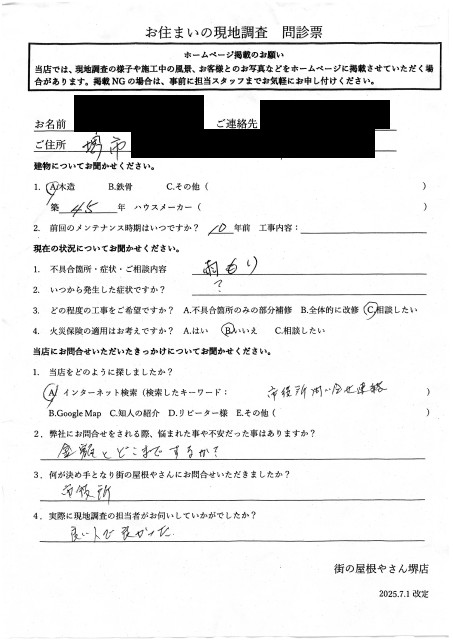 お住まいの現地調査 問診票
ホームページ掲載のお願い
当店では、現地調査の様子や施工中の風景、お客様とのお写真などをホームページに掲載させていただく場
合があります。掲載NGの場合は、事前に担当スタッフまでお気軽にお申し付けください。
お名前 ご連絡先
ご住所 堺市
建物についてお聞かせください。
1. A.木造 B.鉄骨 C.その他（ ）
築 45 年 ハウスメーカー（ ）
2. 前回のメンテナンス時期はいつですか？ 10 年前 工事内容：
現在の状況についてお聞かせください。
1. 不具合箇所・症状・ご相談内容 雨もり
2. いつから発生した症状ですか？ ？
3. どの程度の工事をご希望ですか？ A.不具合箇所のみの部分補修 B.全体的に改修 C.相談したい
4. 火災保険の適用はお考えですか？ A.はい B.いいえ C.相談したい
当店にお問合せいただいたきっかけについてお聞かせください。
1. 当店をどのように探しましたか？
A インターネット検索（検索したキーワード： 市役所問い合せ連絡 ）
B.Google Map C.知人の紹介 D.リピーター様 E.その他（ ）
2．弊社にお問合せをされる際、悩まれた事や不安だった事はありますか？
金額とどこまでするか？
3．何が決め手となり街の屋根やさんにお問合せいただきましたか？
市役所
4．実際に現地調査の担当者がお伺いしていかがでしたか？
良い人で良かった.
街の屋根やさん堺店
2025.7.1 改定